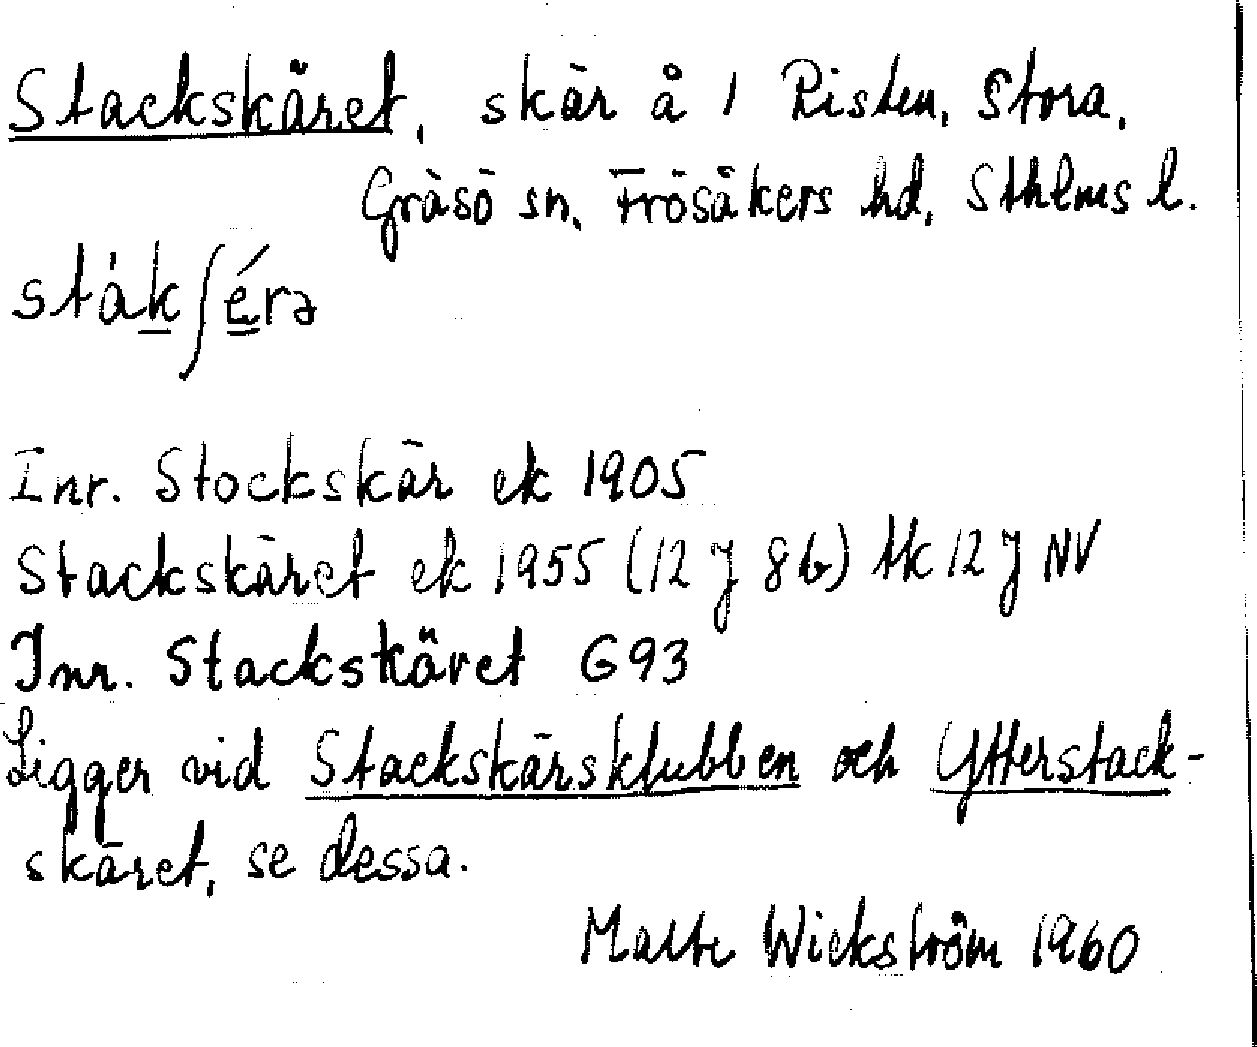 Stackskäret, skär å 1 Risten, Stora,
Gräsö sn, Frösåkers hd, Sthlms l.
ståkʃérə
Inr. Stockskär ek 1905
Stackskäret ek 1955 (12 J 8b) tk 12 J NV
Inr. Stackskäret G93
Ligger vid Stackskärsklubben och Ytterstack-
skäret, se dessa.
Malte Wickström 1960